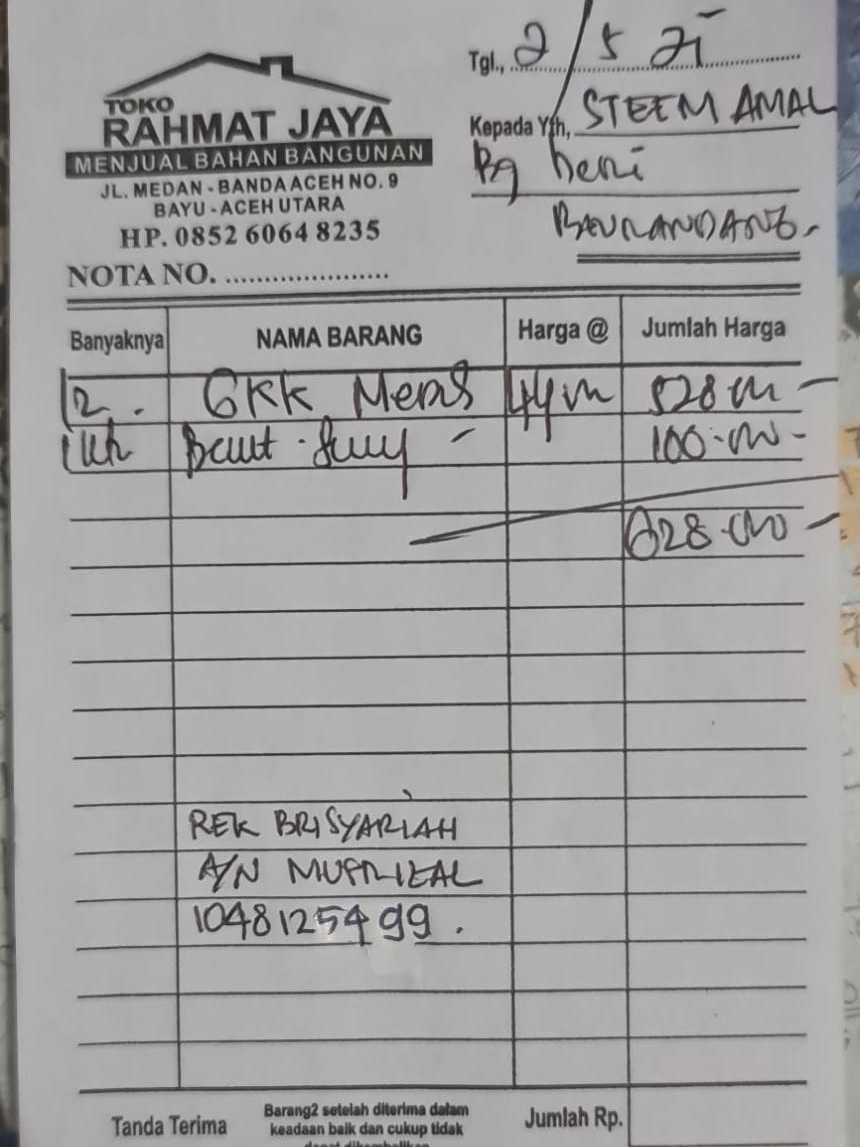 Tgl., 2/5 21
TOKO
RAHMAT JAYA
MENJUAL BAHAN BANGUNAN
JL. MEDAN - BANDA ACEH NO. 9
BAYU - ACEH UTARA
HP. 0852 6064 8235
NOTA NO. ....................
Kepada Yth, STEEM AMAL
Heri
Banyaknya NAMA BARANG Harga @ Jumlah Harga
12. 6KK 44 528
Baut 100
628
REK BRI SYARIAH
A/N
1048125499.
Tanda Terima
Barang2 setelah diterima dalam
keadaan baik dan cukup tidak
Jumlah Rp.